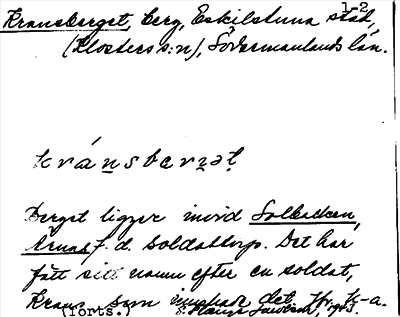 1-2
Kransberget, berg, Eskilstuna stad,
(Klosters s:n), Södermanlands län.
kránsbærʒət
Berget ligger invid Solbacken,
f.d. soldattorp. Det har
fått sid namn efter en soldat,
Krans, som innehade det. Jfr K-a.
(forts.)